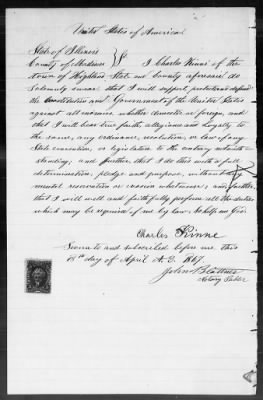 United States of America
State of Illinois
County of Madison } SS I Charles Kinne of the
town of Highland State and County aforesaid do
solemnly swear that I will support, protect and defend
the Constitution and Government of the United States
against all enemies, whether domestic or foreign, and
that I will bear true faith, allegiance and loyalty to
the same, any ordinance, resolution, or law of any
State convention, or legislature to the contrary notwith
standing; and further, that I do this with a full
determination, pledge and purpose, without any
mental reservation or evasion whatsoever; and further,
that I will well and faithfully perform all the duties
which may be required of me by law. So help me God.
Charles Kinne
Sworn to and subscribed before me, this
day of April A.D. 1867.
John
Notary Public